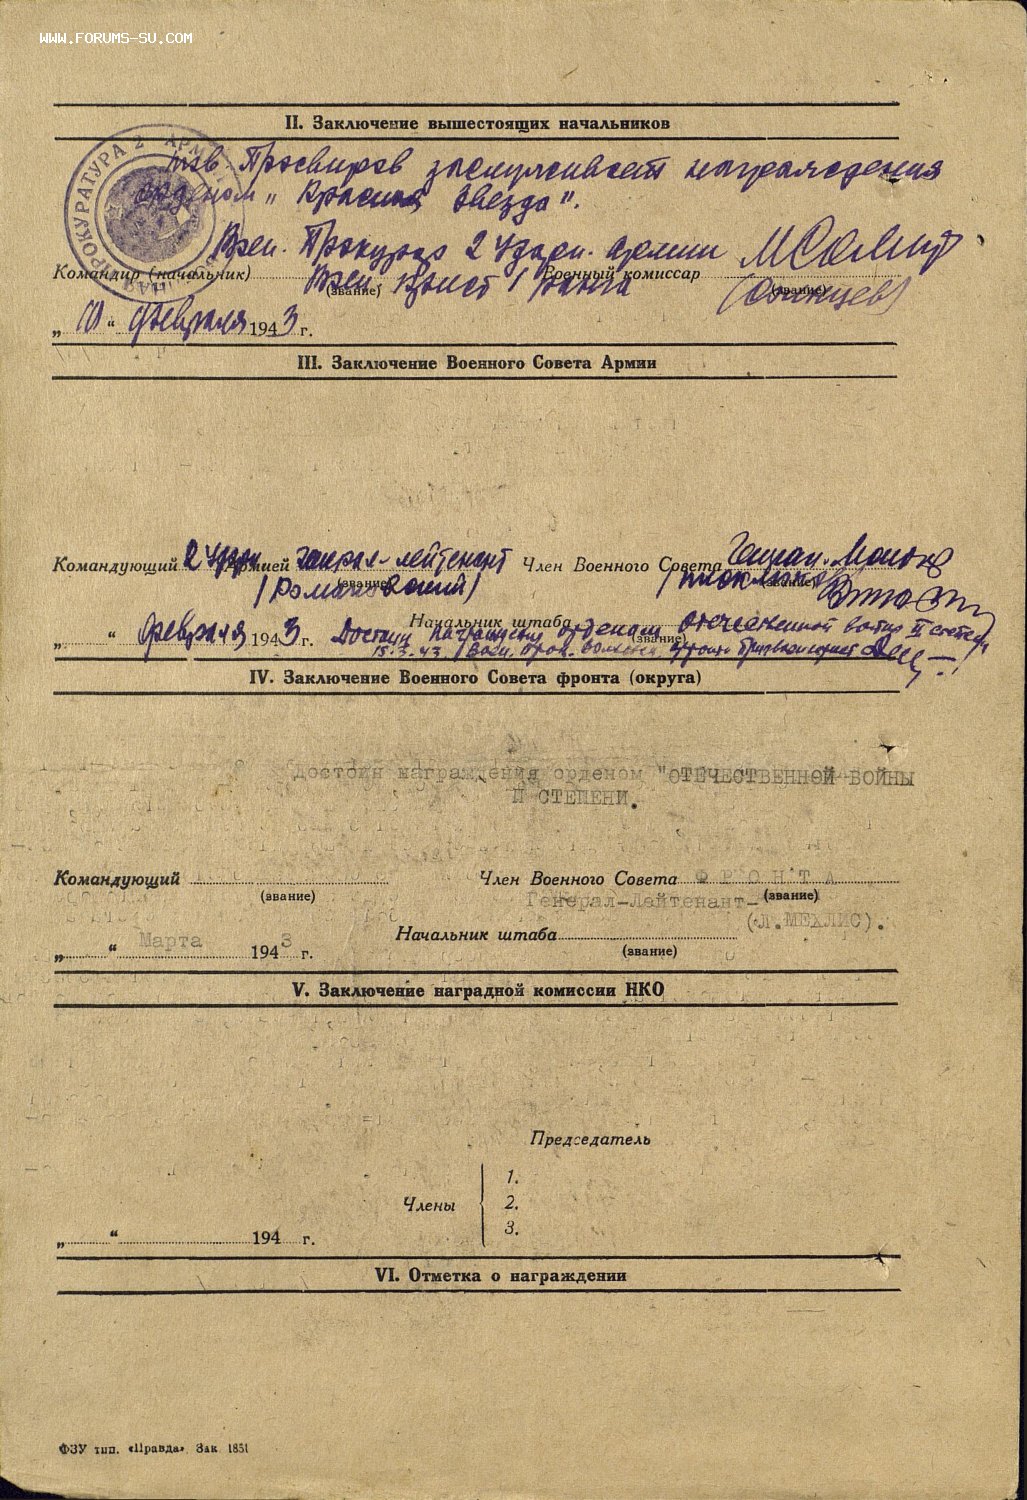 WWW.FORUMS-SU.COM
II. Заключение вышестоящих начальников
ПРОКУРАТУРА 2
тов. Просвиров заслуживает награждения
орденом „Красная Звезда".
Воен. Прокурор 2 Ударн. армии
Командир (начальник) Военный комиссар
Воен. Юрист 1 ранга
(звание) (звание)
„10" февраля 1943 г.
III. Заключение Военного Совета Армии
Командующий 2 Удар Армией генерал-лейтенант Член Военного Совета Генерал-Майор
(звание) (звание)
(Романовский)
Начальник штаба
(звание)
„ " февраля 1943 г. Достоин награждения орденом отечественной войны II степени
15.3.43 Воен. прок. Волховск. фронта
IV. Заключение Военного Совета фронта (округа)
Достоин награждения орденом "ОТЕЧЕСТВЕННОЙ ВОЙНЫ
II СТЕПЕНИ.
Командующий Член Военного Совета ФРОНТА
(звание) (звание)
Генерал-Лейтенант-
(Л.МЕХЛИС).
„ " Марта 1943 г. Начальник штаба
(звание)
V. Заключение наградной комиссии НКО
Председатель
Члены
1.
2.
3.
„ " 194 г.
VI. Отметка о награждении
ФЗУ тип. «Правда» Зак 1851